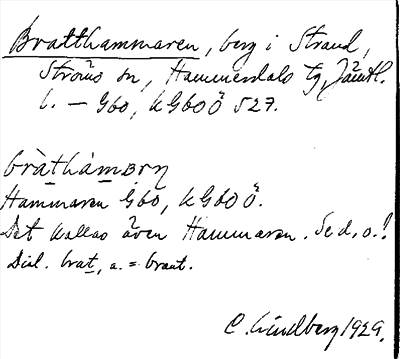 Bratthammaren, berg i Strand,
Ströms sn, Hammerdals tg, Jämtl.
l. — Gbo, kGboÖ 527.
bràthámɒrn̥
Hammaren Gbo, kGboÖ.
Det kallas även Hammaren. Se d. o.!
Dial. brat, a. = brant.
C. Lindberg 1929.